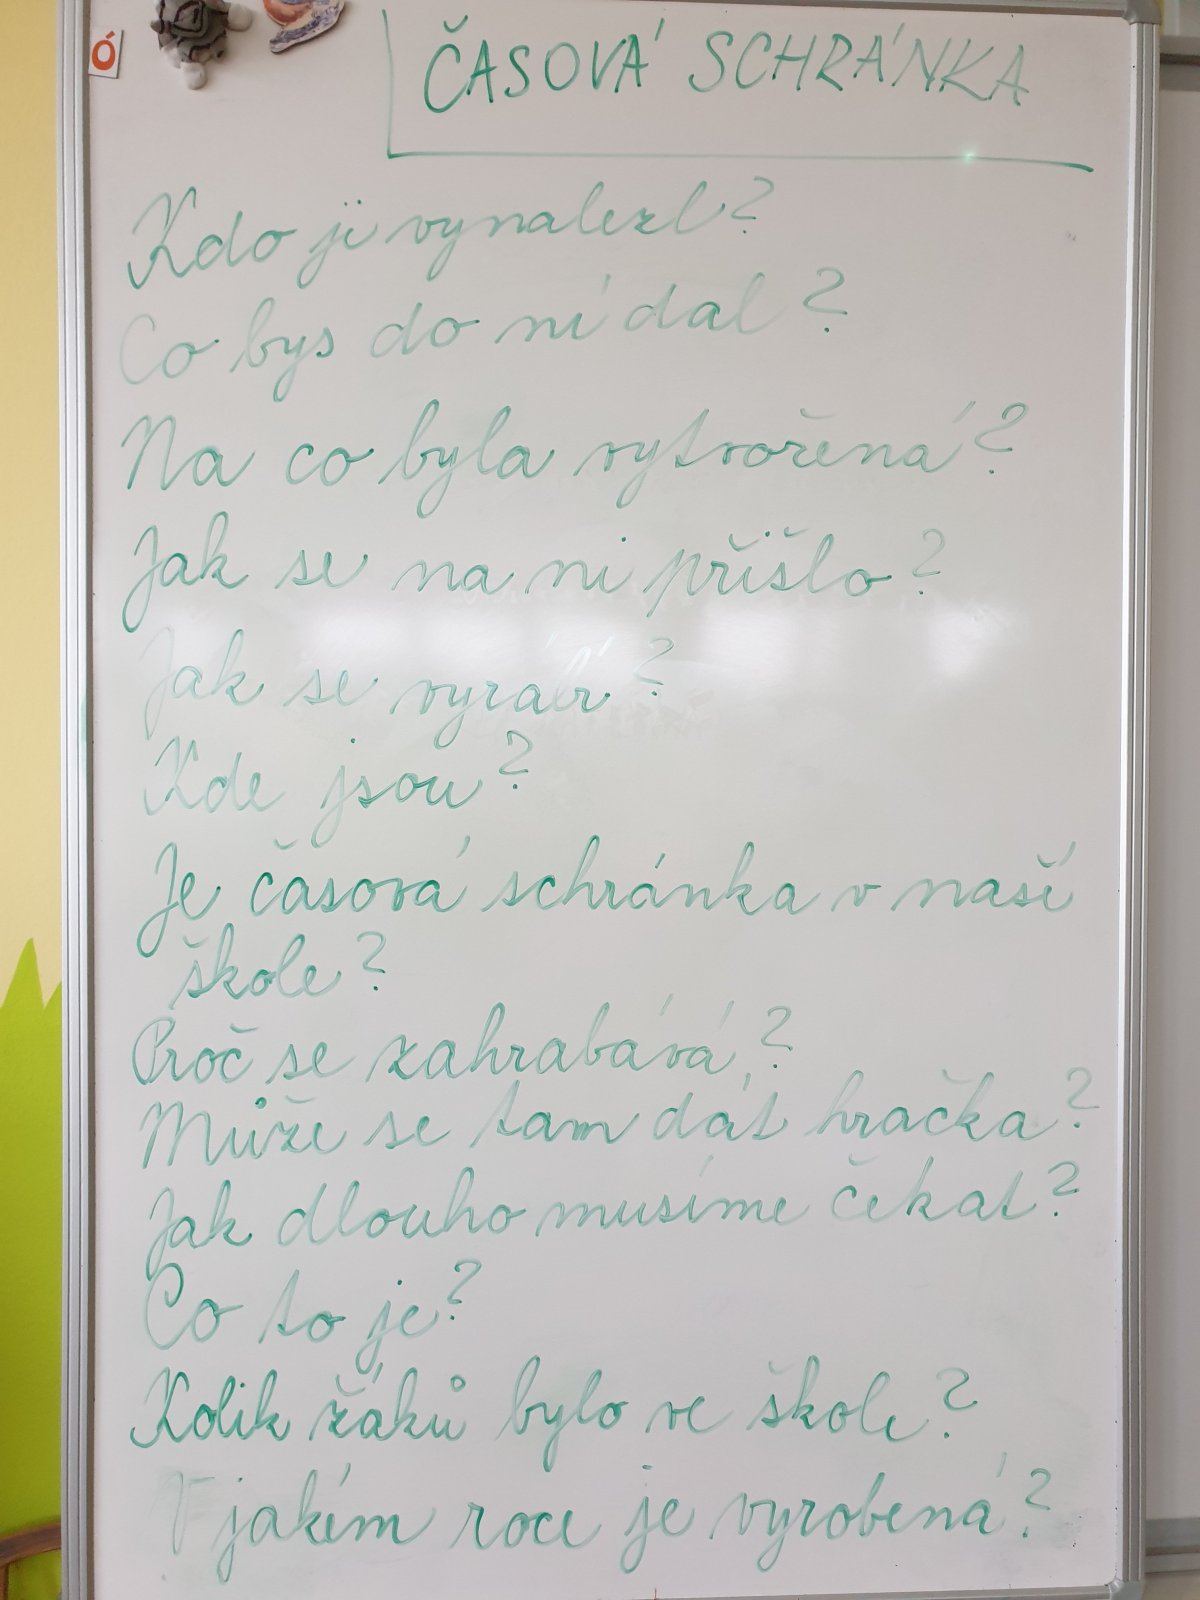 Ó
ČASOVÁ SCHRÁNKA
Kdo ji vynalezl?
Co bys do ní dal?
Na co byla vytvořená?
Jak se na ni přišlo?
Jak se vyrábí?
Kde jsou?
Je časová schránka v naší
škole?
Proč se zahrabává?
Může se tam dát hračka?
Jak dlouho musíme čekat?
Co to je?
Kolik žáků bylo ve škole?
V jakém roce je vyrobená?